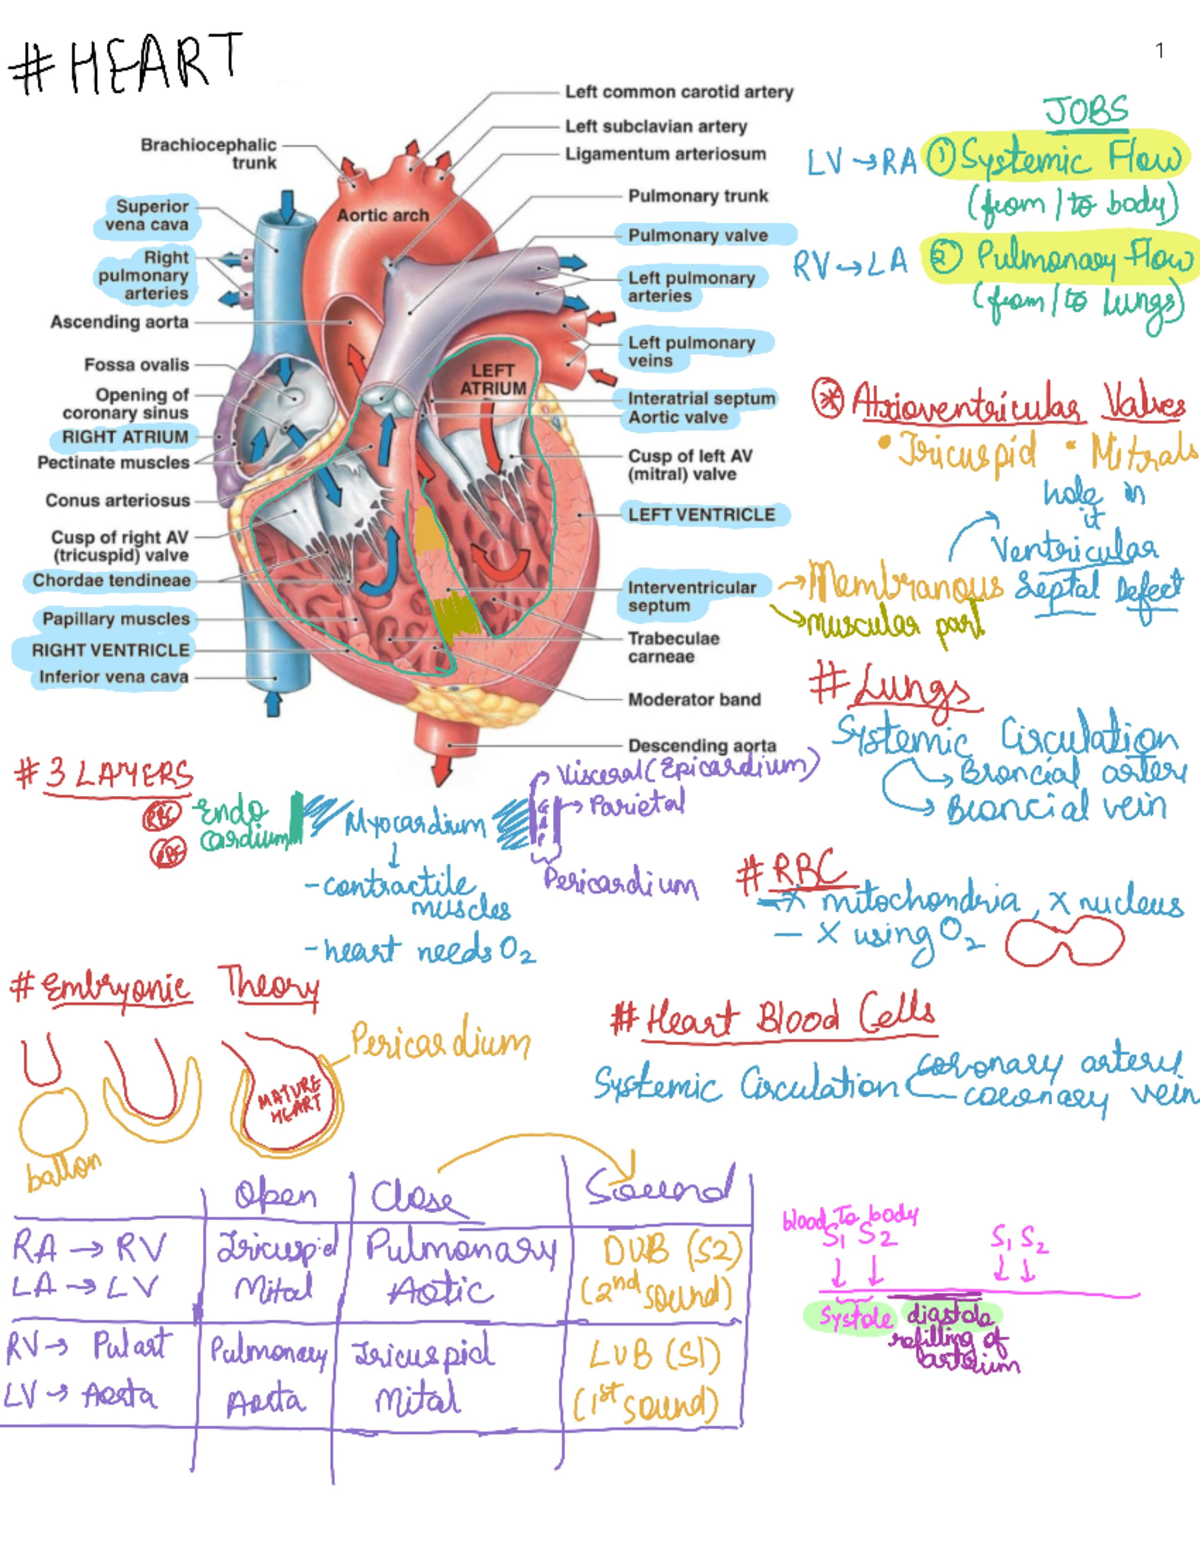 #HEART
1
Left common carotid artery
Left subclavian artery
Ligamentum arteriosum
Brachiocephalic
trunk
Aortic arch
Pulmonary trunk
Superior
vena cava
Pulmonary valve
Right
pulmonary
arteries
Left pulmonary
arteries
Ascending aorta
Left pulmonary
veins
Fossa ovalis
LEFT
ATRIUM
Opening of
coronary sinus
Interatrial septum
RIGHT ATRIUM
Aortic valve
Pectinate muscles
Cusp of left AV
(mitral) valve
Conus arteriosus
LEFT VENTRICLE
Cusp of right AV
(tricuspid) valve
Chordae tendineae
Interventricular
septum
Papillary muscles
Trabeculae
carneae
RIGHT VENTRICLE
Inferior vena cava
Moderator band
Descending aorta
JOBS
LV → RA ① Systemic Flow
(from / to body)
RV → LA ② Pulmonary Flow
(from / to Lungs)
Atrioventricular Valves
• Tricuspid • Mitrals
hole in
it
Ventricular
Septal Defect
→ Membranous
→ muscular part
# Lungs
Systemic Circulation
→ Broncial arteri
→ Broncial vein
# 3 LAYERS
RBC
RBC
Endo
cardium
Myocardium
Visceral (Epicardium)
→ Parietal
Pericardium
- contractile
muscles
- heart needs O2
# RBC
- X mitochondria, X nucleus
- X using O2
# Embryonic Theory
Pericardium
MATURE
HEART
ballon
# Heart Blood Cells
Systemic Circulation
coronary artery
coronary vein
Open Close Sound
RA → RV Tricuspid Pulmonary DUB (S2)
LA → LV Mital Aotic (2nd sound)
RV → Pulart Pulmonery Tricuspid LUB (S1)
LV → Aorta Aorta Mital (1st sound)
blood To body
S1 S2 S1 S2
Systole diastole
refilling of